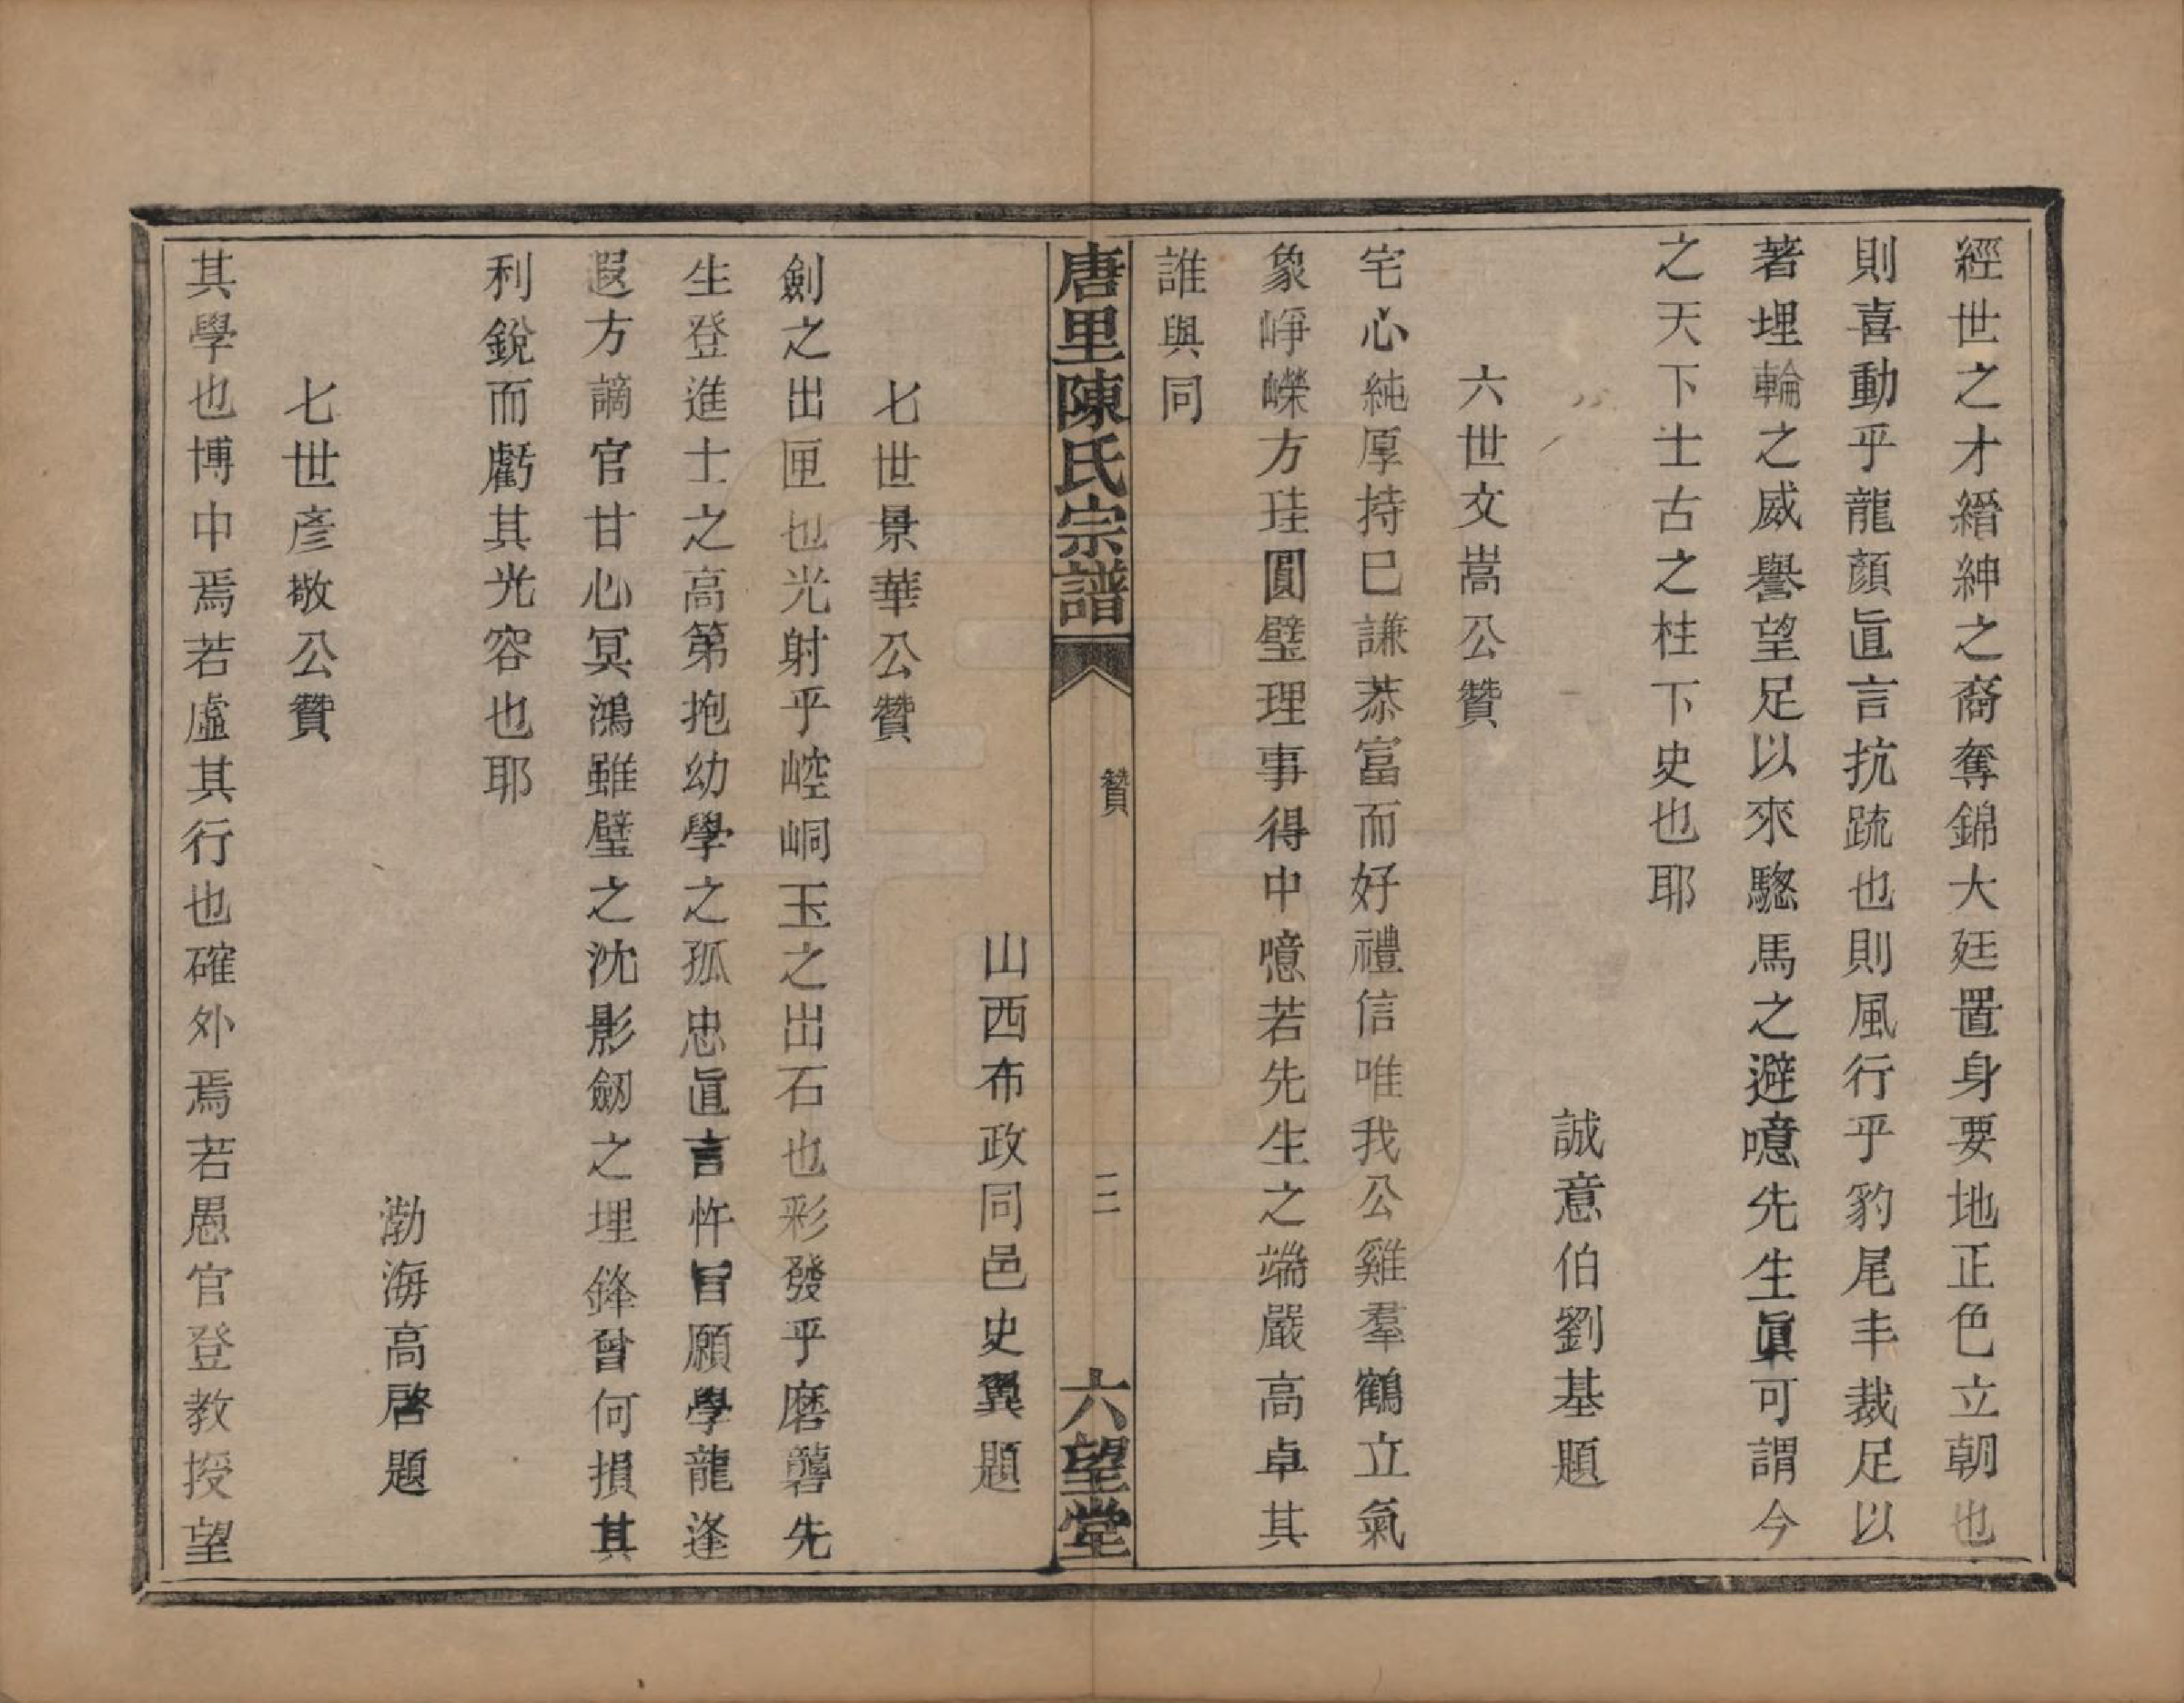 經世之才縉紳之裔奪錦大廷置身要地正色立朝也
則喜動乎龍顏眞言抗䟽也則風行乎豹尾丰裁足以
著埋輪之威譽望足以來驄馬之避噫先生眞可謂今
之天下士古之柱下史也耶
誠意伯劉基題
六世文嵩公贊
宅心純厚持巳謙恭富而好禮信唯我公雞羣鶴立氣
象崢嶸方珪圓璧理事得中噫若先生之端嚴高卓其
誰與同
唐里陳氏宗譜
贊
二
六望堂
山西布政同邑史翼題
七世景華公贊
劍之出匣也光射乎崆峒玉之出石也彩發乎磨礱先
生登進士之高第抱幼學之孤忠眞言忤旨願學龍逢
遐方謫官甘心冥鴻雖璧之沈影劒之埋鋒曾何損其
利銳而虧其光容也耶
渤海高啓題
七世彥敬公贊
其學也博中焉若虛其行也確外焉若愚官登教授望